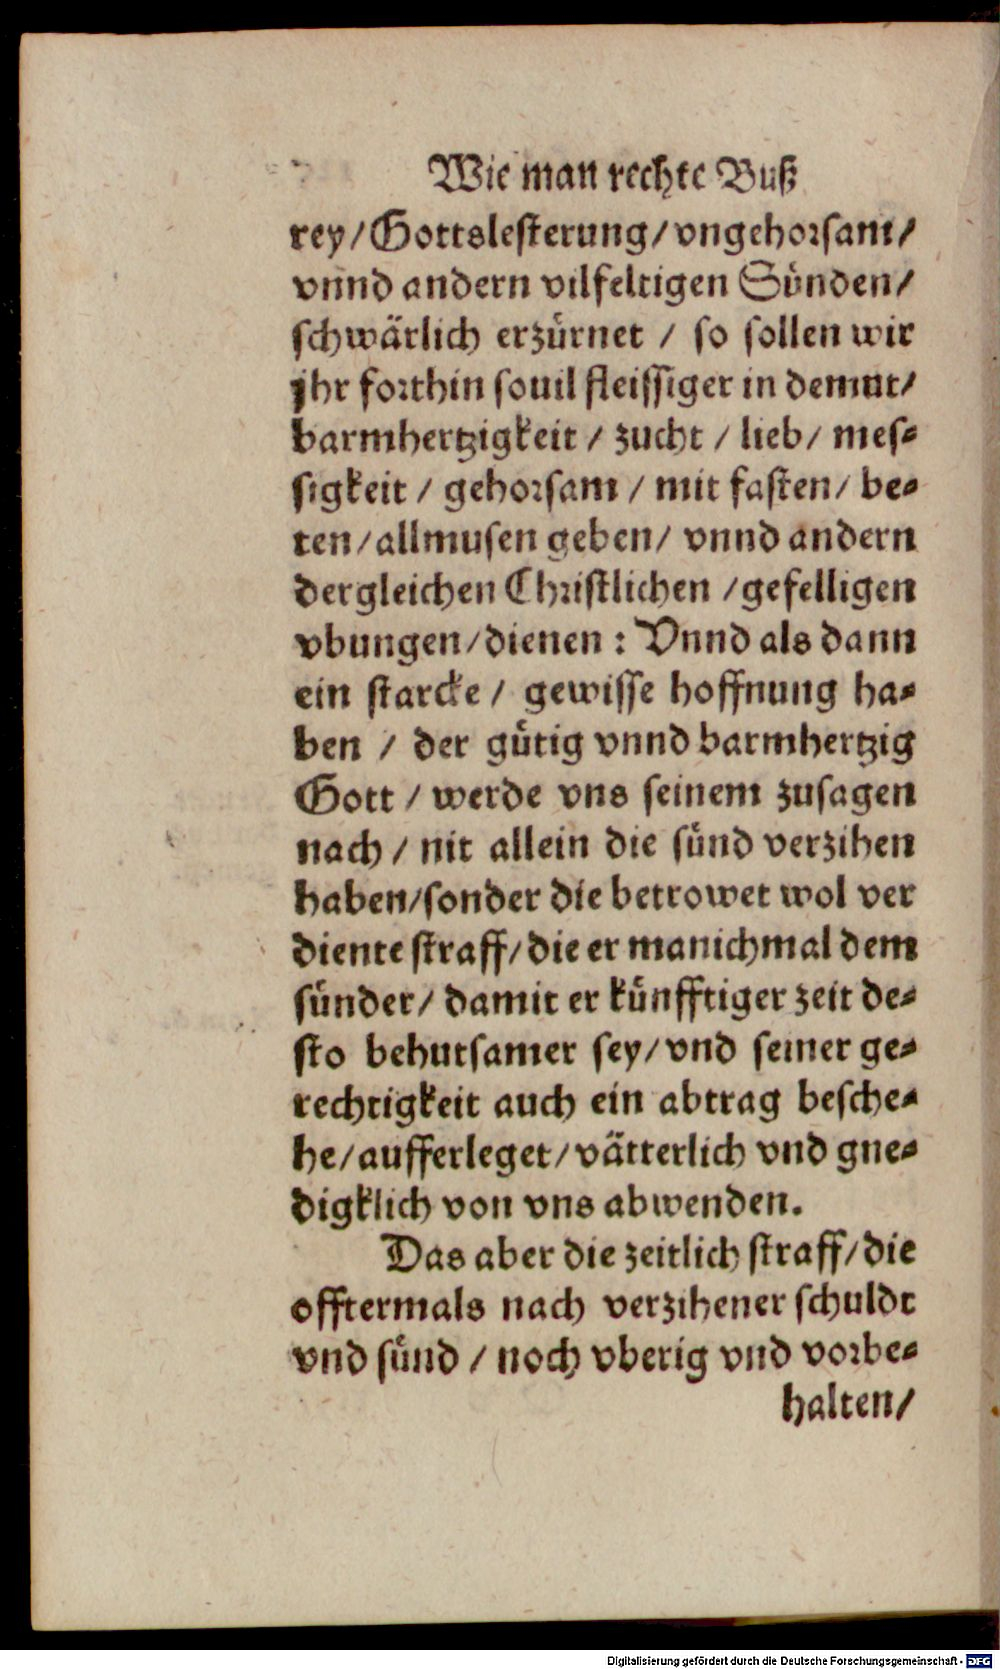 Wie man rechte Buß
rey/Gottslesterung/vngehorsam/
vnnd andern vilfeltigen Sünden/
schwärlich erzürnet / so sollen wir
jhr forthin souil fleissiger in demut/
barmhertzigkeit / zucht / lieb/ mes-
sigkeit / gehorsam / mit fasten/ be-
ten/allmusen geben/ vnnd andern
dergleichen Christlichen /gefelligen
vbungen/dienen : Vnnd als dann
ein starcke / gewisse hoffnung ha-
ben / der gütig vnnd barmhertzig
Gott / werde vns seinem zusagen
nach / nit allein die sünd verzihen
haben/sonder die betrowet wol ver
diente straff/die er manichmal dem
sünder/ damit er künfftiger zeit de-
sto behutsamer sey/vnd seiner ge-
rechtigkeit auch ein abtrag besche-
he/aufferleget/vätterlich vnd gne-
digklich von vns abwenden.
Das aber die zeitlich straff/die
offtermals nach verzihener schuldt
vnd sünd / noch vberig vnd vorbe-
halten/
Digitalisierung gefördert durch die Deutsche Forschungsgemeinschaft - DFG